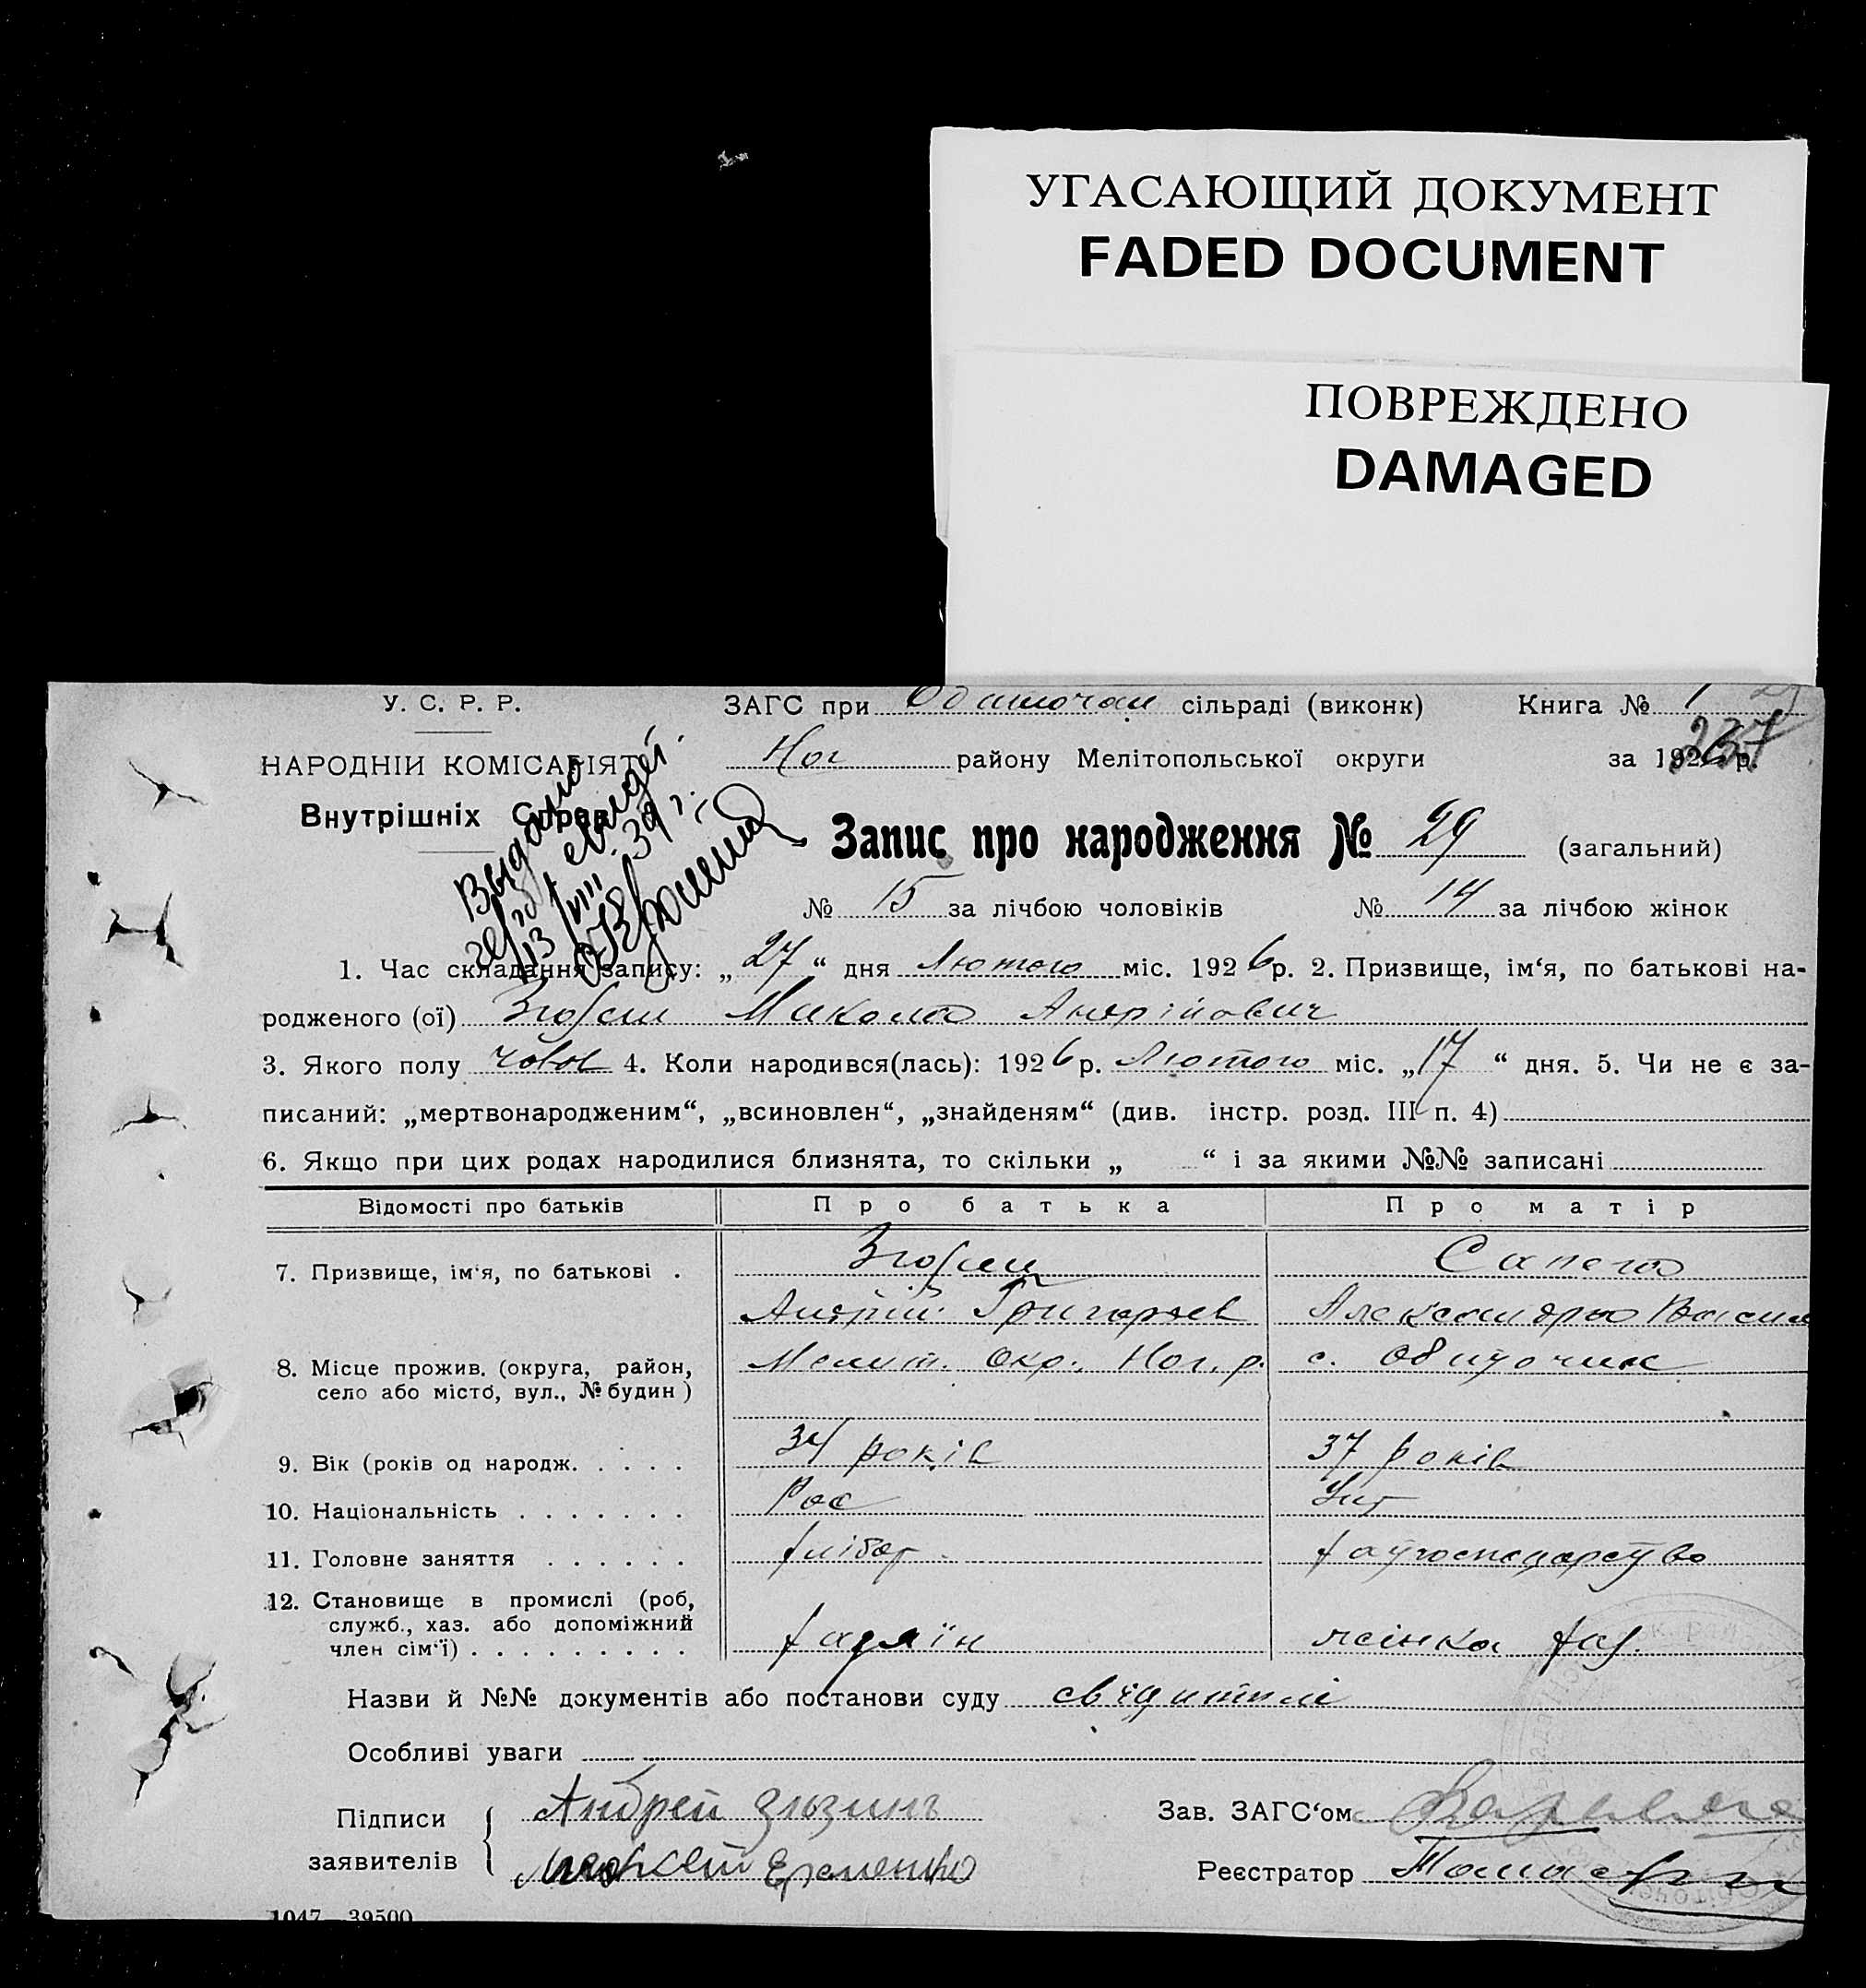 УГАСАЮЩИЙ ДОКУМЕНТ
FADED DOCUMENT
ПОВРЕЖДЕНО
DAMAGED
У. С. Р. Р.
НАРОДНІЙ КОМІСАРІЯТ
Внутрішніх Справ
ЗАГС при сільраді (виконк) Книга № 1
Ног району Мелітопольської округи за 1926 р.
237
Запис про народження № 29 (загальний)
№ 15 за лічбою чоловіків № 14 за лічбою жінок
1. Час складання запису: „27“ дня Лютого міс. 1926 р. 2. Призвище, ім‘я, по батькові на-
родженого (ої) Зюзин Микола Андрійович
3. Якого полу чолов 4. Коли народився(лась): 1926 р. Лютого міс. „17“ дня. 5. Чи не є за-
писаний: „мертвонародженим“, „всиновлен“, „знайденям“ (див. інстр. розд. III п. 4)
6. Якщо при цих родах народилися близнята, то скільки „ “ і за якими №№ записані
Відомості про батьків Про батька Про матір
7. Призвище, ім‘я, по батькові . Зюзин Сапега
Андрій Григорьев Александра Васил
8. Місце прожив. (округа, район, село або місто, вул., № будин ) Мелит. Окр. Ног. р. с. Обиточне
9. Вік (років од народж. . . . . 34 років 37 років
10. Національність . . . . . . . Рос Укр
11. Головне заняття . . . . . . хлібор. хатгосподарство
12. Становище в промислі (роб, служб., хаз. або допоміжний член сім‘ї) . . . . . . . . . хазяїн жінка хаз.
Назви й №№ документів або постанови суду свідителі
Особливі уваги
Підписи заявителів
Андрей Зюзинъ
Еременко
Зав. ЗАГС‘ом
Реєстратор
1047—39500